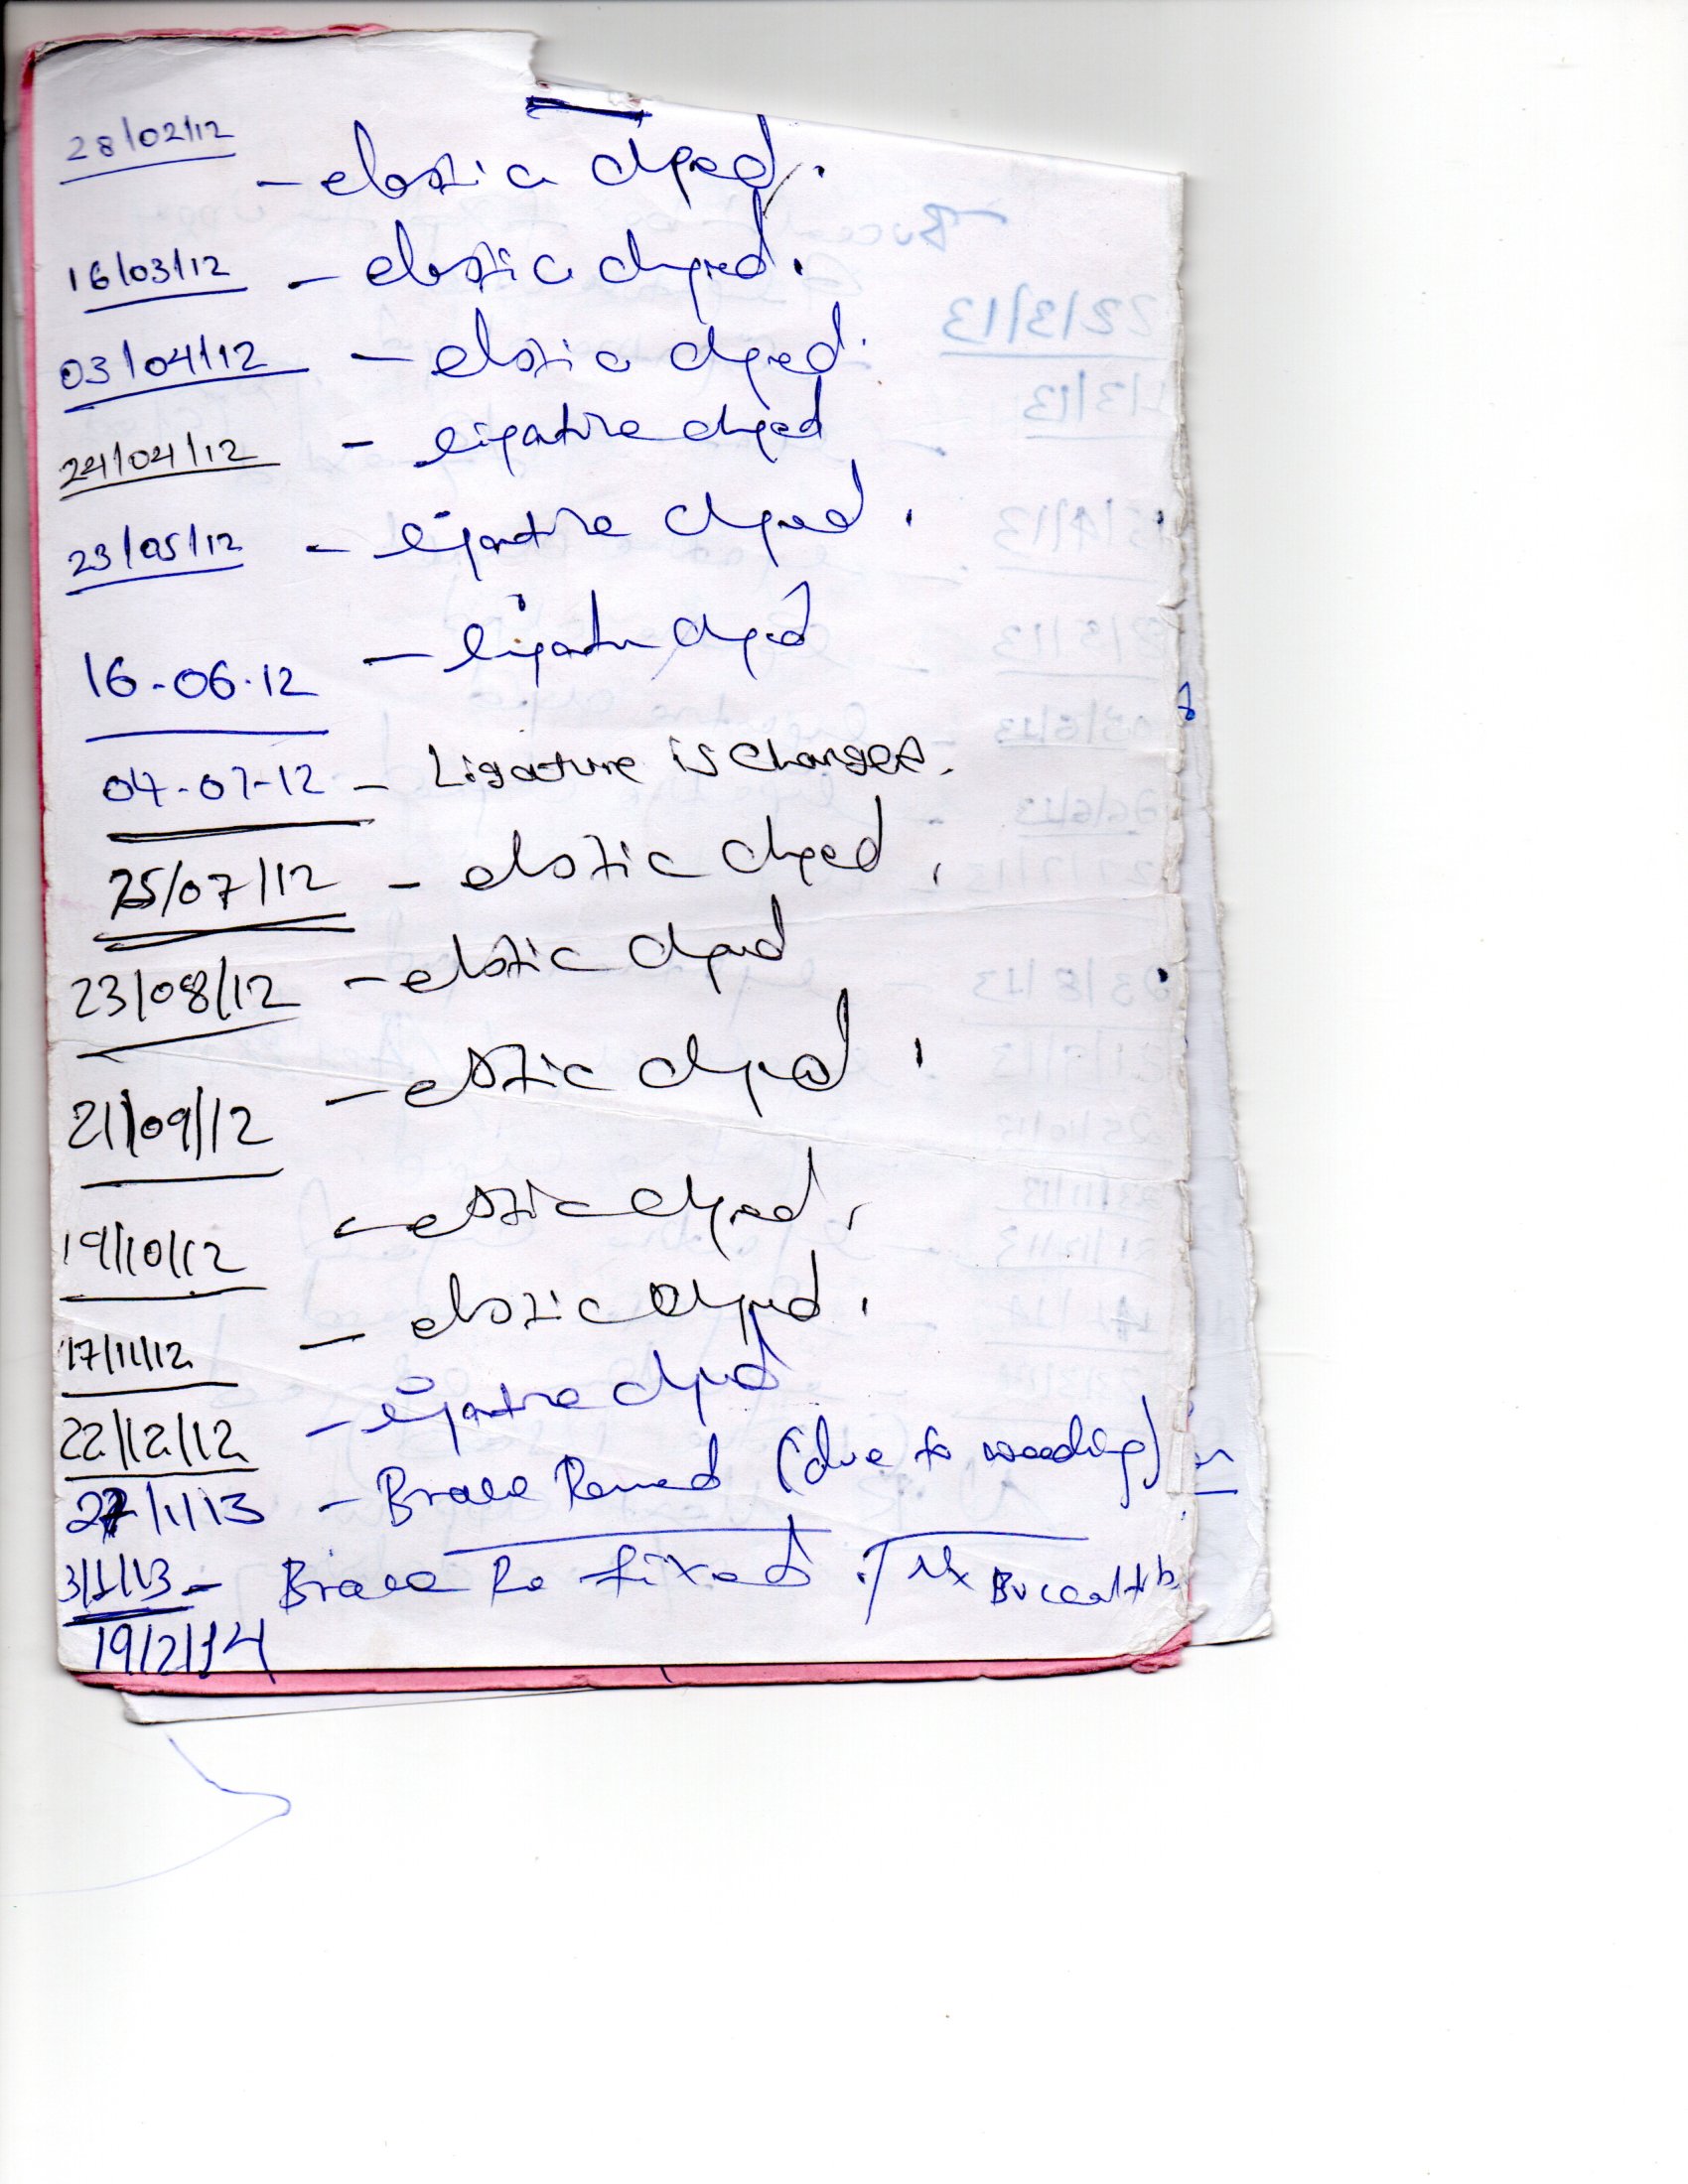 28/02/12 - elastic chged.
16/03/12 - elastic chged.
03/04/12 - elastic chged.
24/04/12 - ligature chged
23/05/12 - ligature chged.
16-06-12 - ligature chged
04-07-12 - Ligature is changed.
25/07/12 - elastic chged.
23/08/12 - elastic chged
21/09/12 - elastic chged.
19/10/12 - elastic chged.
17/11/12 - elastic chged.
22/12/12 - ligature chged
27/1/13 - Brace Remed (due to wedding)
3/1/13 - Brace Re fixed. Buccal tb
19/2/14